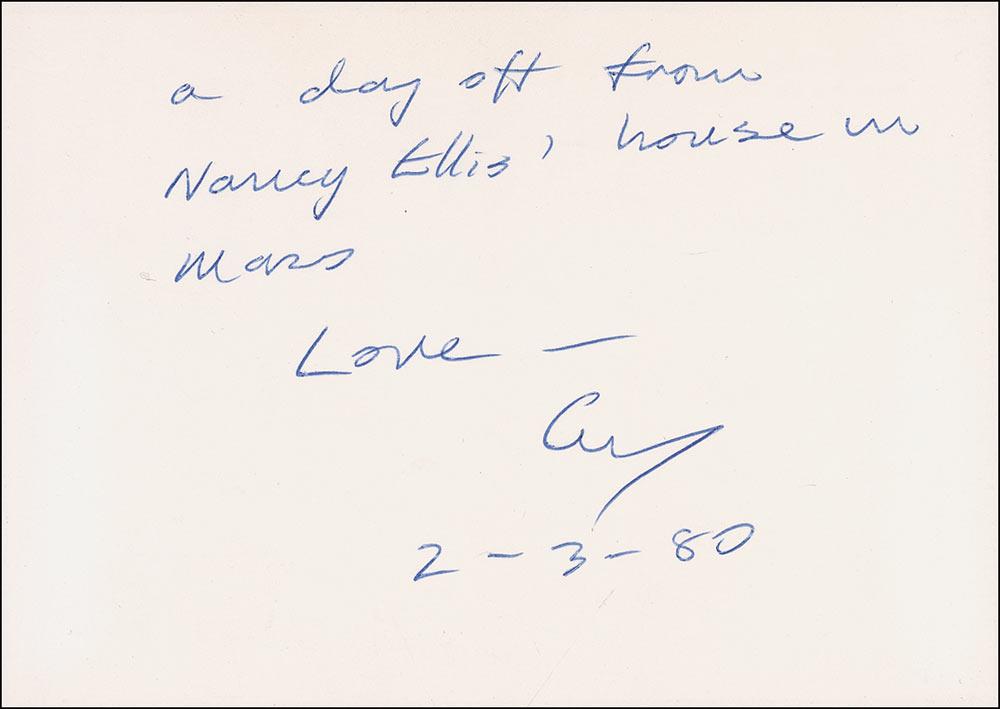 a day off from
Nancy Ellis' house in
Mass
Love —
2-3-80